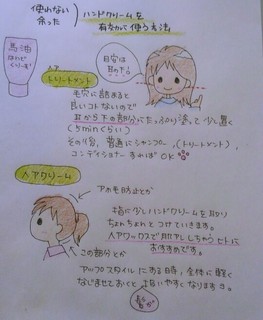 使わない
余った
ハンドクリームを
有効に使う方法
馬油
目安は
耳の下!
ヘア
トリートメント
毛穴に詰まると
良いコトないので
耳から下の部分にたっぷり塗って少し置く
(5minくらい)
その後、普通にシャンプー、(トリートメント)、
コンディショナーすればOK
ヘアクリーム
アホ毛防止とか
指に少しハンドクリームを取り
ちょちょんとつけていきます。
ヘアワックスで肌アレしちゃうヒトに
おすすめです。
この部分とか
アップスタイルにする時、全体に軽く
なじませておくと
まとまりやすくなります